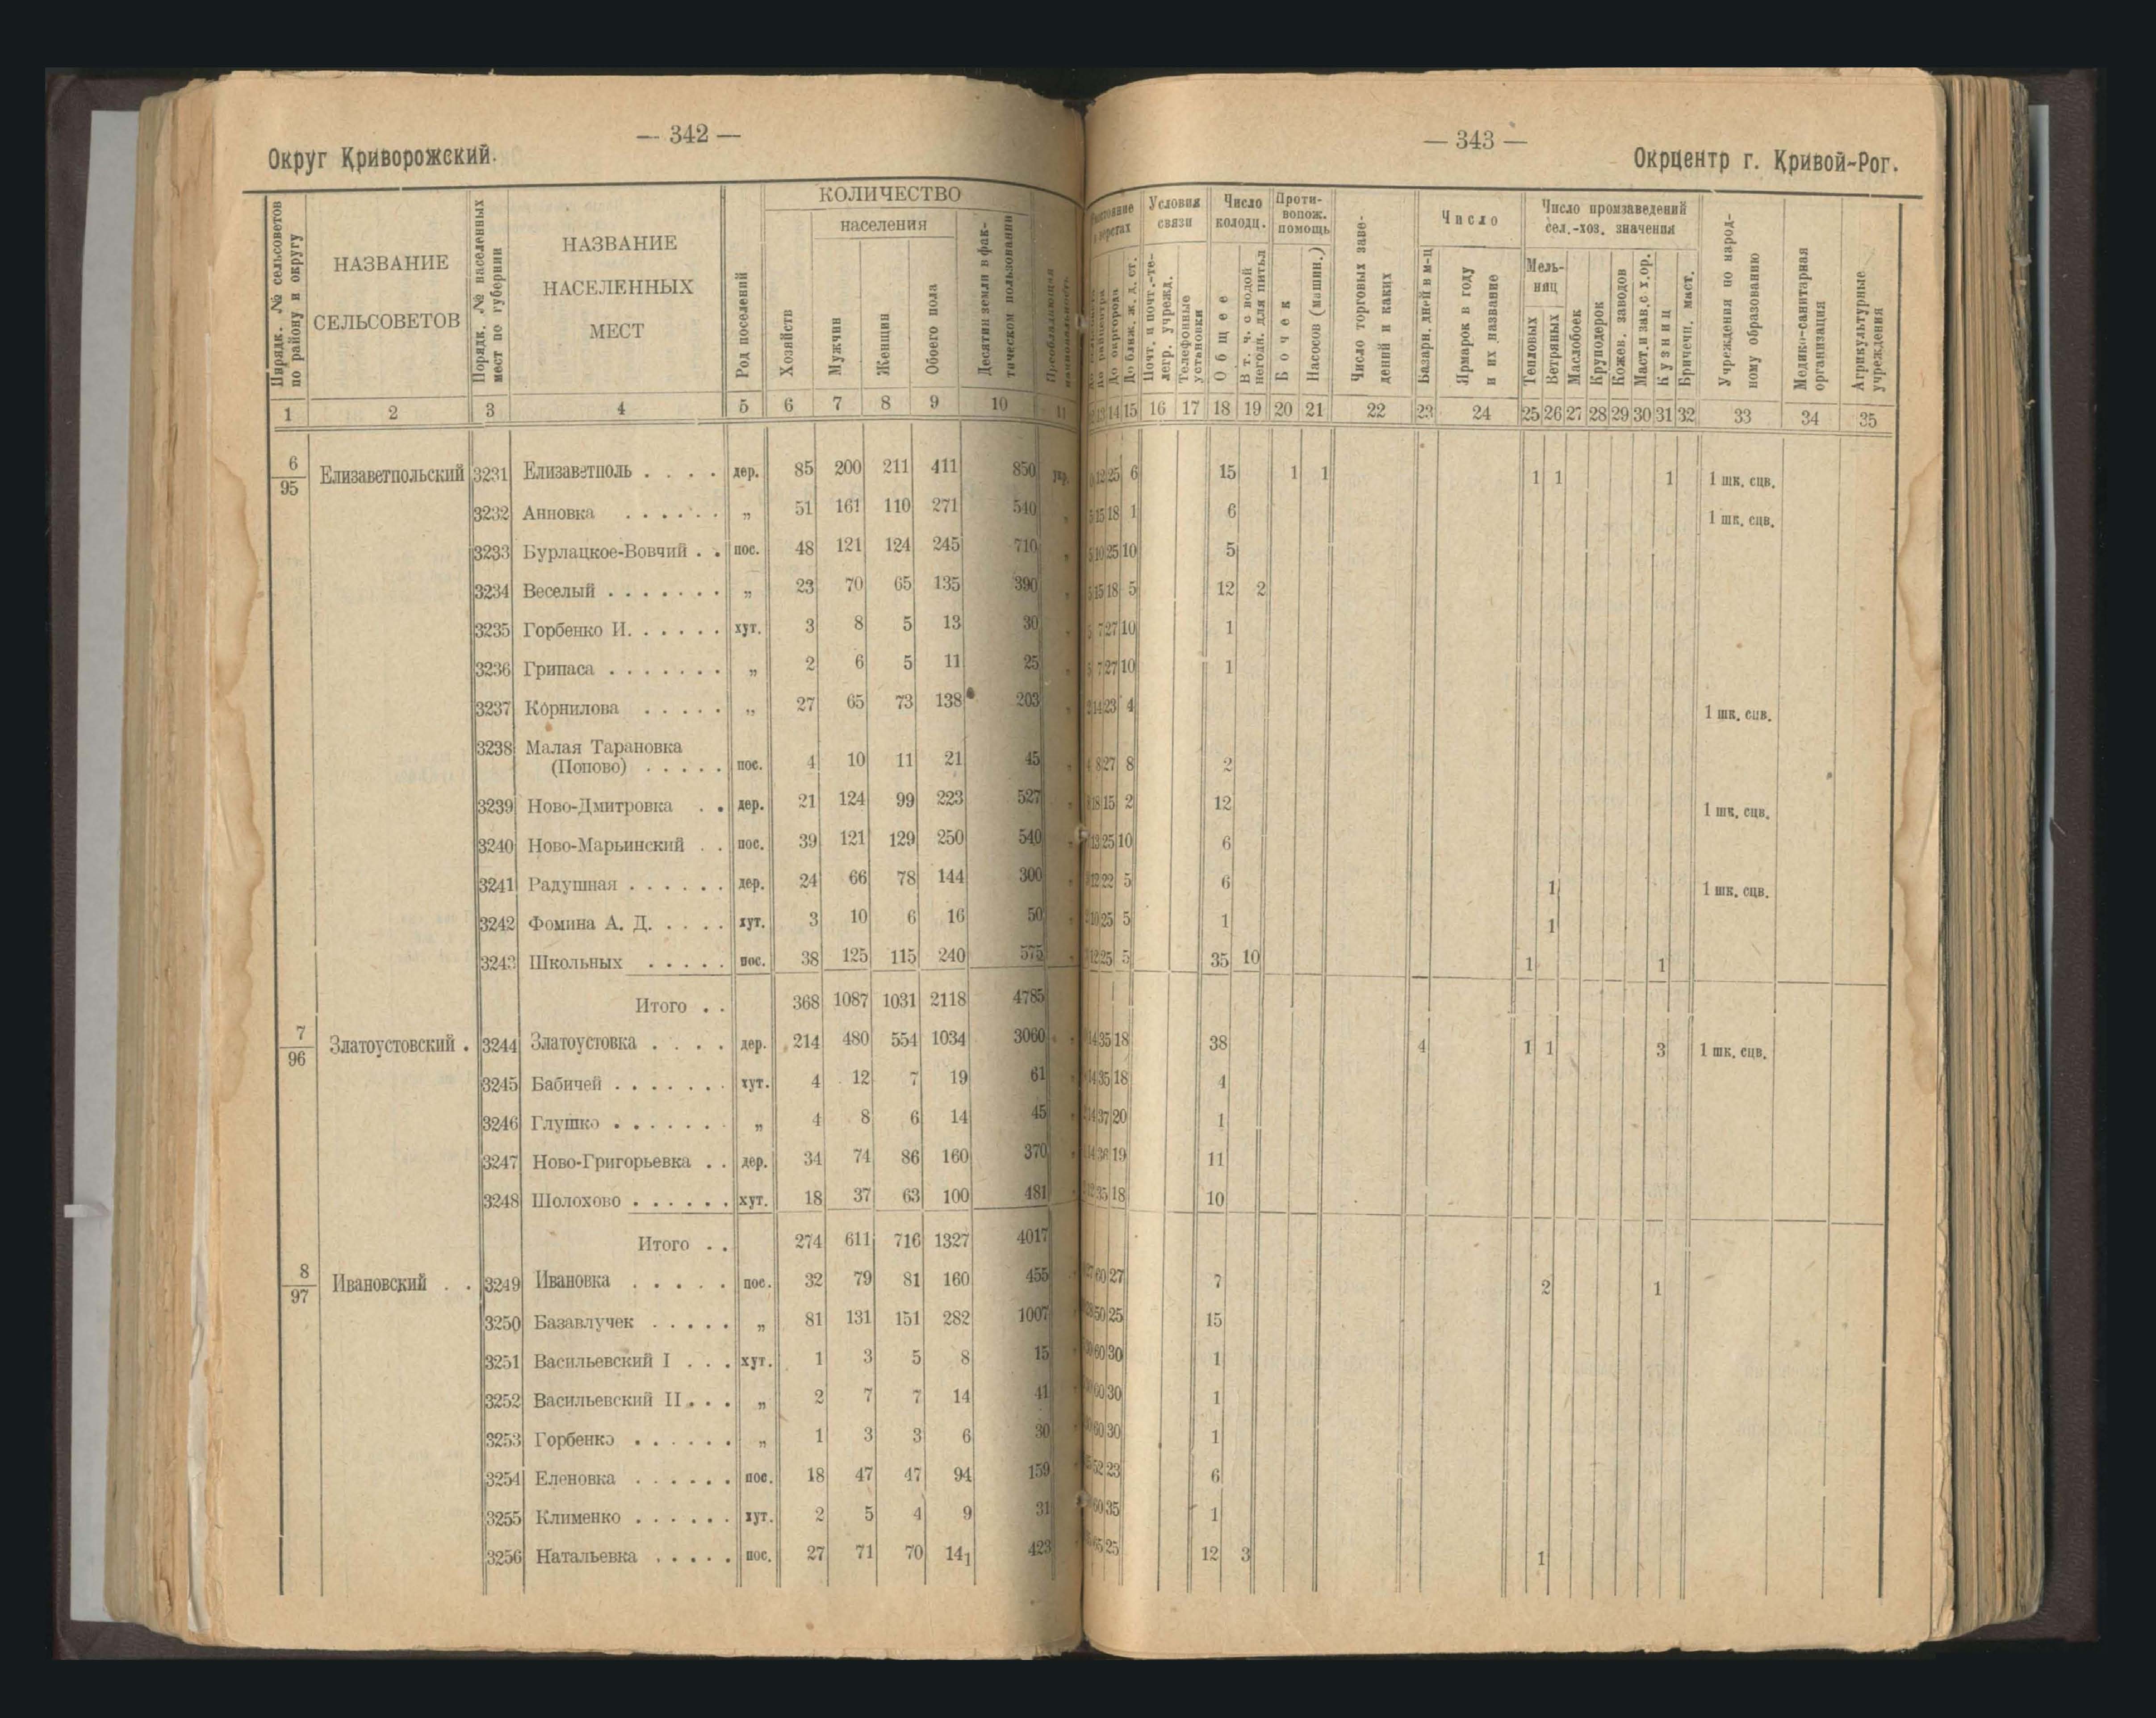 — 342 —
Округ Криворожский.
Порядк. № сельсоветов по району и округу
НАЗВАНИЕ СЕЛЬСОВЕТОВ
Порядк. № населенных мест по губернии
НАЗВАНИЕ НАСЕЛЕННЫХ МЕСТ
Род поселений
КОЛИЧЕСТВО
Хозяйств
населения
Мужчин
Женщин
Обоего пола
Десятин земли в фактическом пользовании
Преобладающая национальность
1 2 3 4 5 6 7 8 9 10 11
6/95 Елизаветпольский 3231 Елизаветполь . . . . дер. 85 200 211 411 850 укр.
3232 Анновка . . . . . . „ 51 161 110 271 540 „
3233 Бурлацкое-Вовчий . . пос. 48 121 124 245 710 „
3234 Веселый . . . . . . . „ 23 70 65 135 390 „
3235 Горбенко И. . . . . . хут. 3 8 5 13 30 „
3236 Грипаса . . . . . . . „ 2 6 5 11 25 „
3237 Корнилова . . . . . „ 27 65 73 138 203 „
3238 Малая Тарановка
(Попово) . . . . . пос. 4 10 11 21 45 „
3239 Ново-Дмитровка . . дер. 21 124 99 223 527 „
3240 Ново-Марьинский . . пос. 39 121 129 250 540 „
3241 Радушная . . . . . . дер. 24 66 78 144 300 „
3242 Фомина А. Д. . . . . хут. 3 10 6 16 50 „
3243 Школьных . . . . . пос. 38 125 115 240 575 „
Итого . . 368 1087 1031 2118 4785
7/96 Златоустовский . 3244 Златоустовка . . . . дер. 214 480 554 1034 3060 „
3245 Бабичей . . . . . . . хут. 4 12 7 19 61 „
3246 Глушко . . . . . . . „ 4 8 6 14 45 „
3247 Ново-Григорьевка . . дер. 34 74 86 160 370 „
3248 Шолохово . . . . . . хут. 18 37 63 100 481 „
Итого . . 274 611 716 1327 4017
8/97 Ивановский . . 3249 Ивановка . . . . . пос. 32 79 81 160 455
3250 Базавлучек . . . . . „ 81 131 151 282 1007
3251 Васильевский I . . . хут. 1 3 5 8 15
3252 Васильевский II . . . „ 2 7 7 14 41
3253 Горбенко . . . . . . „ 1 3 3 6 30
3254 Еленовка . . . . . . пос. 18 47 47 94 159
3255 Клименко . . . . . . хут. 2 5 4 9 31
3256 Натальевка . . . . . пос. 27 71 70 141 423
— 343 —
Окрцентр г. Кривой-Рог.
Расстояние в верстах
До райцентра
До окргорода
До ближ. ж. д. ст.
Условия связи
Почт. и почт.-телегр. учрежд.
Телефонные установки
Число колодц.
Общее
В т. ч. с водой негодн. для питья
Противопож. помощь
Бочек
Насосов (машин.)
Число торговых заведений и каких
Число
Базарн. дней в м-ц
Ярмарок в году и их название
Число промзаведений сел.-хоз. значения
Мельниц
Тепловых
Ветряных
Маслобоек
Круподерок
Кожев. заводов
Маст. и зав. с. х. ор.
Кузниц
Бричечн. маст.
Учреждения по народному образованию
Медико-санитарная организация
Агрикультурные учреждения
13 14 15 16 17 18 19 20 21 22 23 24 25 26 27 28 29 30 31 32 33 34 35
12 25 6 15 1 1 1 1 1 1 шк. сцв.
5 15 18 1 6 1 шк. сцв.
5 10 25 10 5
5 15 18 5 12 2
5 7 27 10 1
5 7 27 10 1
2 14 23 4 1 шк. сцв.
4 8 27 8 2
18 15 2 12 1 шк. сцв.
13 25 10 6
12 22 5 6 1 1 шк. сцв.
10 25 5 1 1
12 25 5 35 10 1 1
14 35 18 38 4 1 1 3 1 шк. сцв.
14 35 18 4
14 37 20 1
14 36 19 11
35 18 10
60 27 7 2 1
50 25 15
60 30 1
60 30 1
60 30 1
52 23 6
60 35 1
65 25 12 3 1